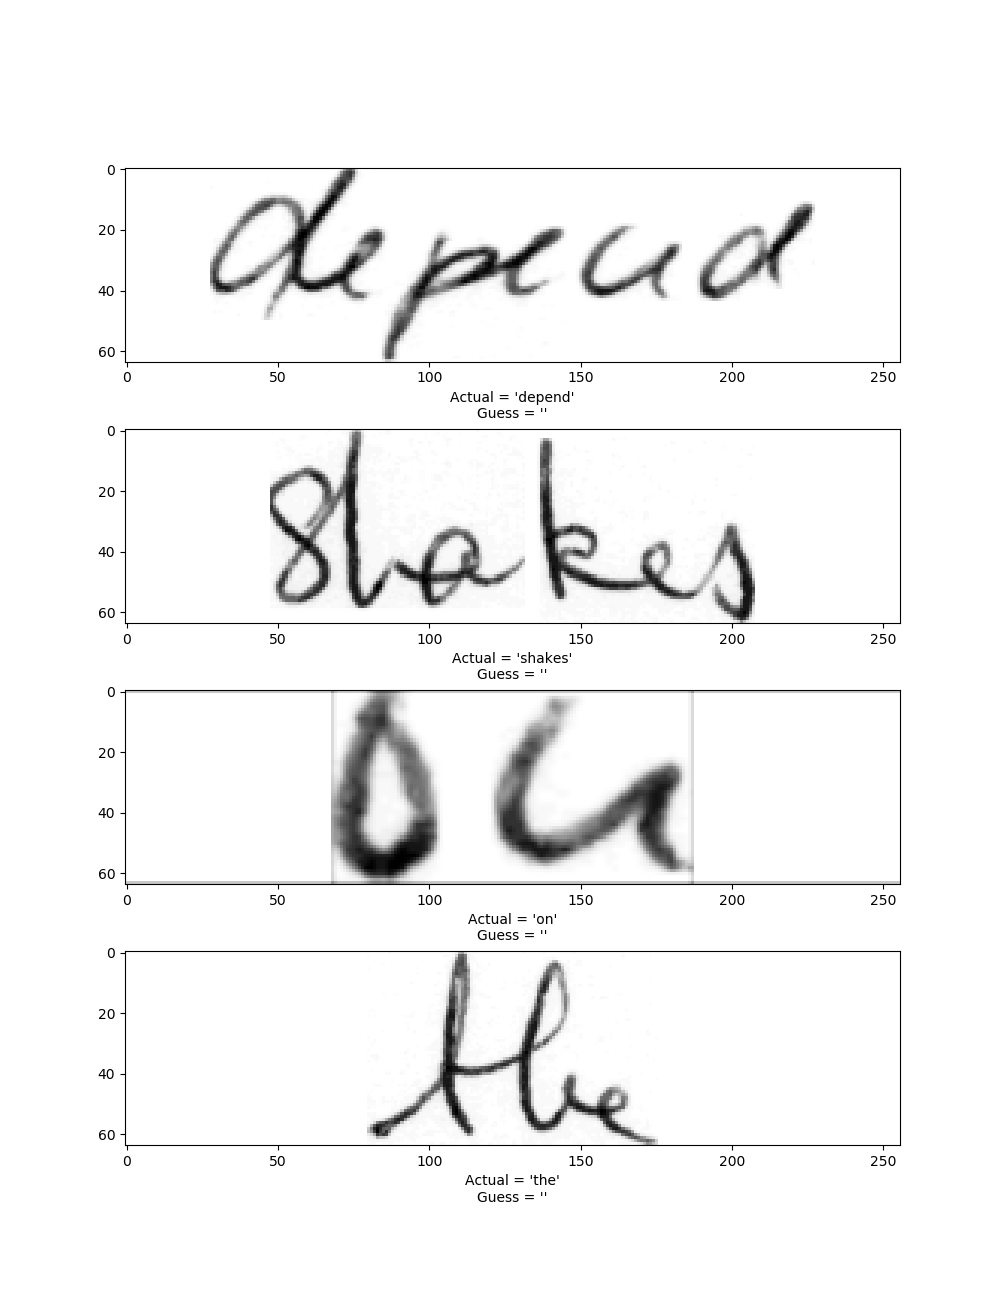 0
20
40
60
depend
0 50 100 150 200 250
Actual = 'depend'
Guess = ''
0
20
40
60
shakes
0 50 100 150 200 250
Actual = 'shakes'
Guess = ''
0
20
40
60
on
0 50 100 150 200 250
Actual = 'on'
Guess = ''
0
20
40
60
the
0 50 100 150 200 250
Actual = 'the'
Guess = ''